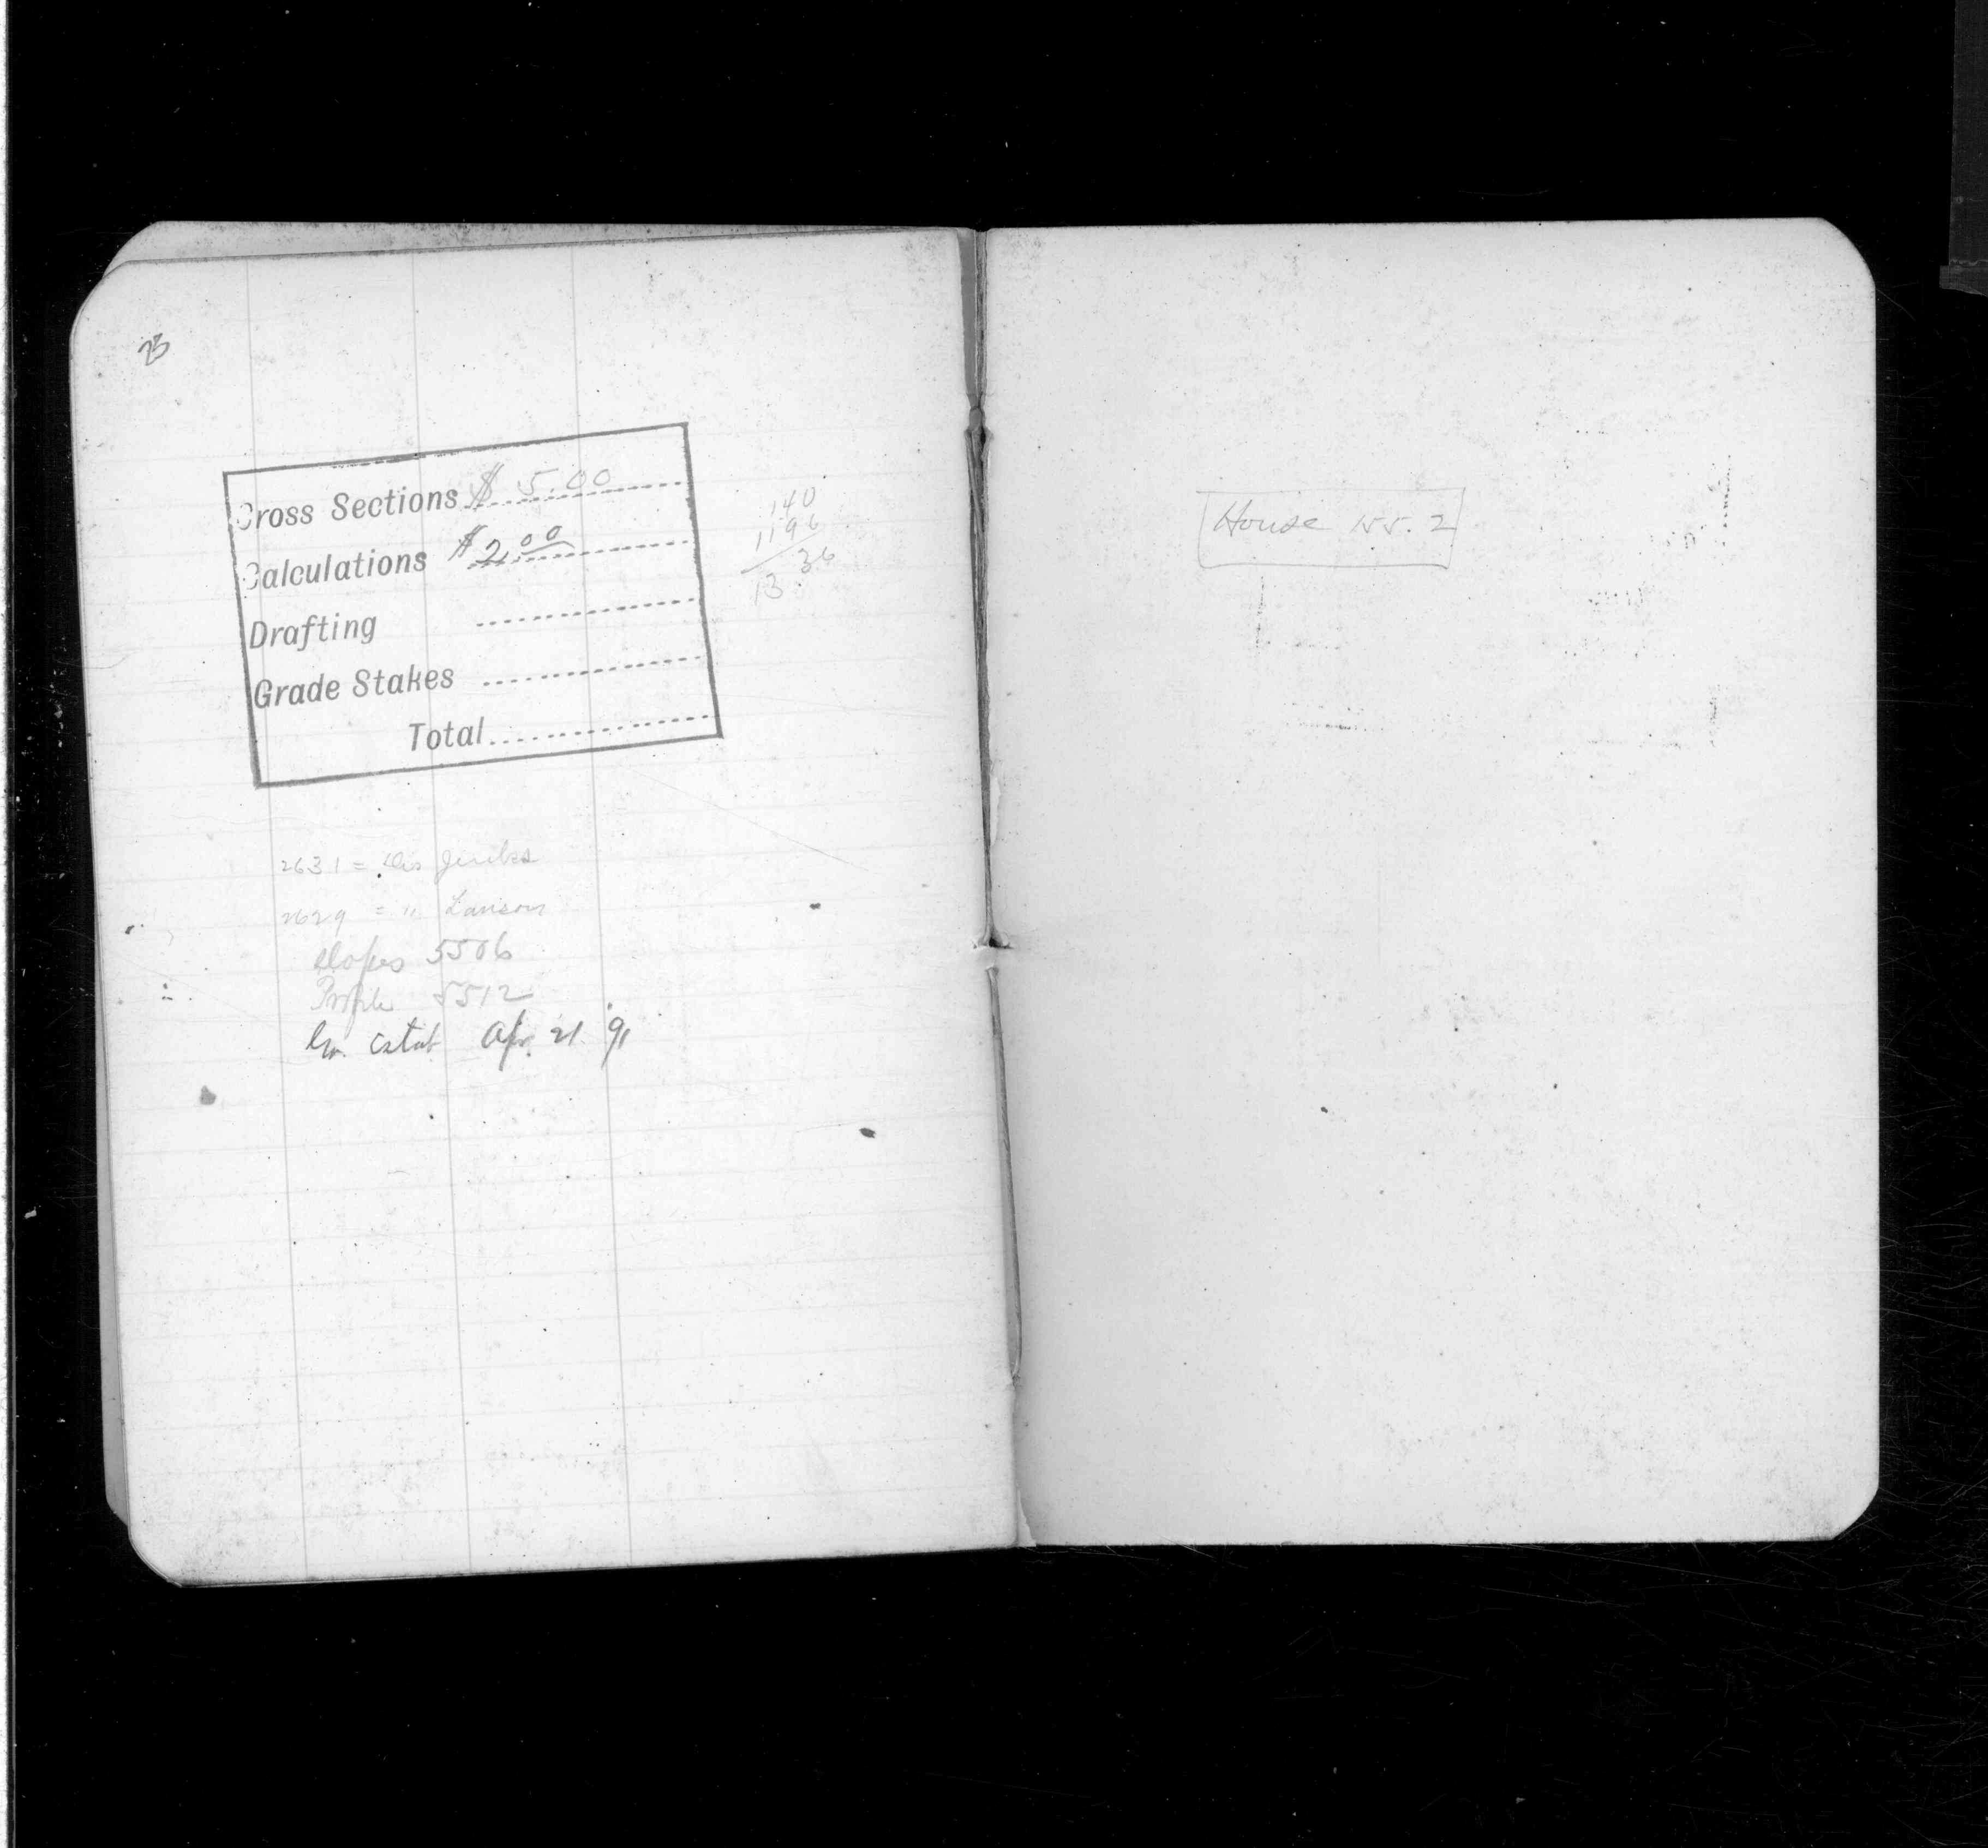 23
Cross Sections $ 5.00
Calculations $ 2.00
Drafting
Grade Stakes
Total
140
1196
36
13
2631 =
2629 = "
Slopes 5506
Profile 5512
Gr. Estab Apr. 21. 91
House 155.2